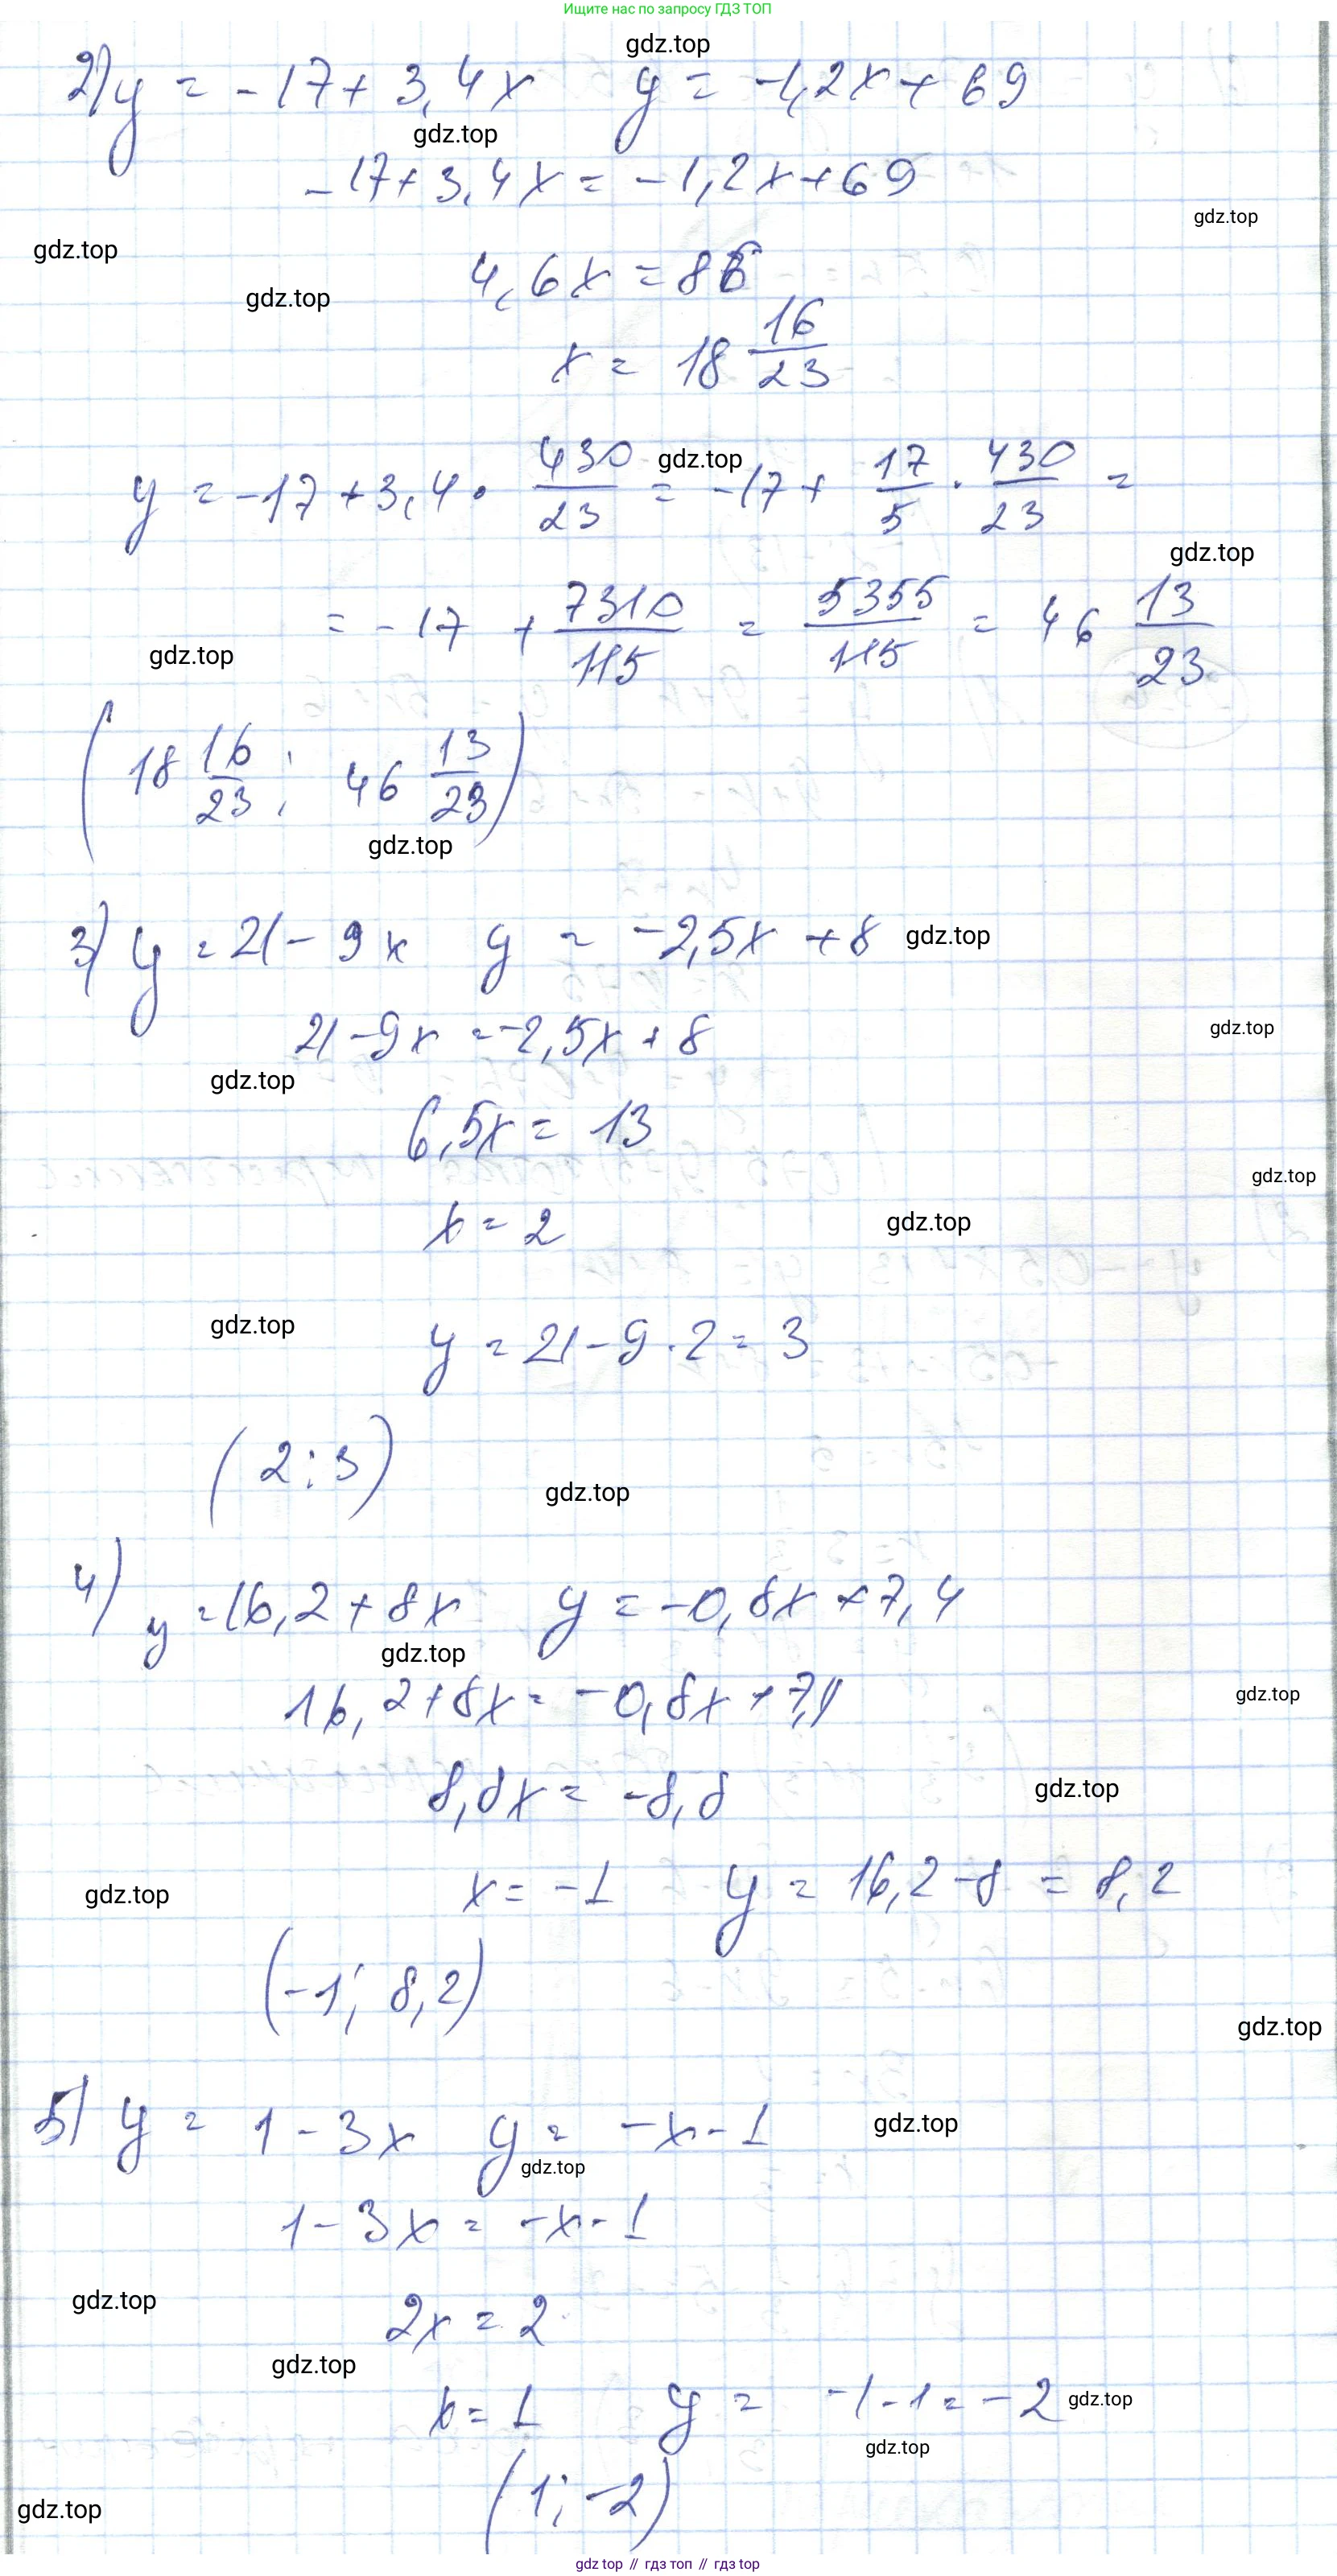 Ищите нас по запросу ГДЗ ТОП
gdz.top
2) y = -17 + 3,4x y = -1,2x + 69
gdz.top
-17 + 3,4x = -1,2x + 69
gdz.top
gdz.top
4,6x = 86
gdz.top
x = 18 16/23
y = -17 + 3,4 · 430/23 = -17 + 17/5 · 430/23 =
gdz.top
gdz.top
= -17 + 7310/115 = 5355/115 = 46 13/23
gdz.top
(18 16/23; 46 13/23)
gdz.top
3) y = 21 - 9x y = -2,5x + 8 gdz.top
21 - 9x = -2,5x + 8
gdz.top
gdz.top
6,5x = 13
gdz.top
x = 2
gdz.top
gdz.top
y = 21 - 9 · 2 = 3
(2; 3)
gdz.top
4) y = 16,2 + 8x y = -0,8x + 7,4
gdz.top
16,2 + 8x = -0,8x + 7,4
gdz.top
8,8x = -8,8
gdz.top
x = -1 y = 16,2 - 8 = 8,2
gdz.top
(-1; 8,2)
gdz.top
5) y = 1 - 3x y = -x - 1
gdz.top
gdz.top
1 - 3x = -x - 1
gdz.top
2x = 2
gdz.top
x = 1 y = -1 - 1 = -2 gdz.top
gdz.top
(1; -2)
gdz.top
gdz top // гдз топ // гдз top